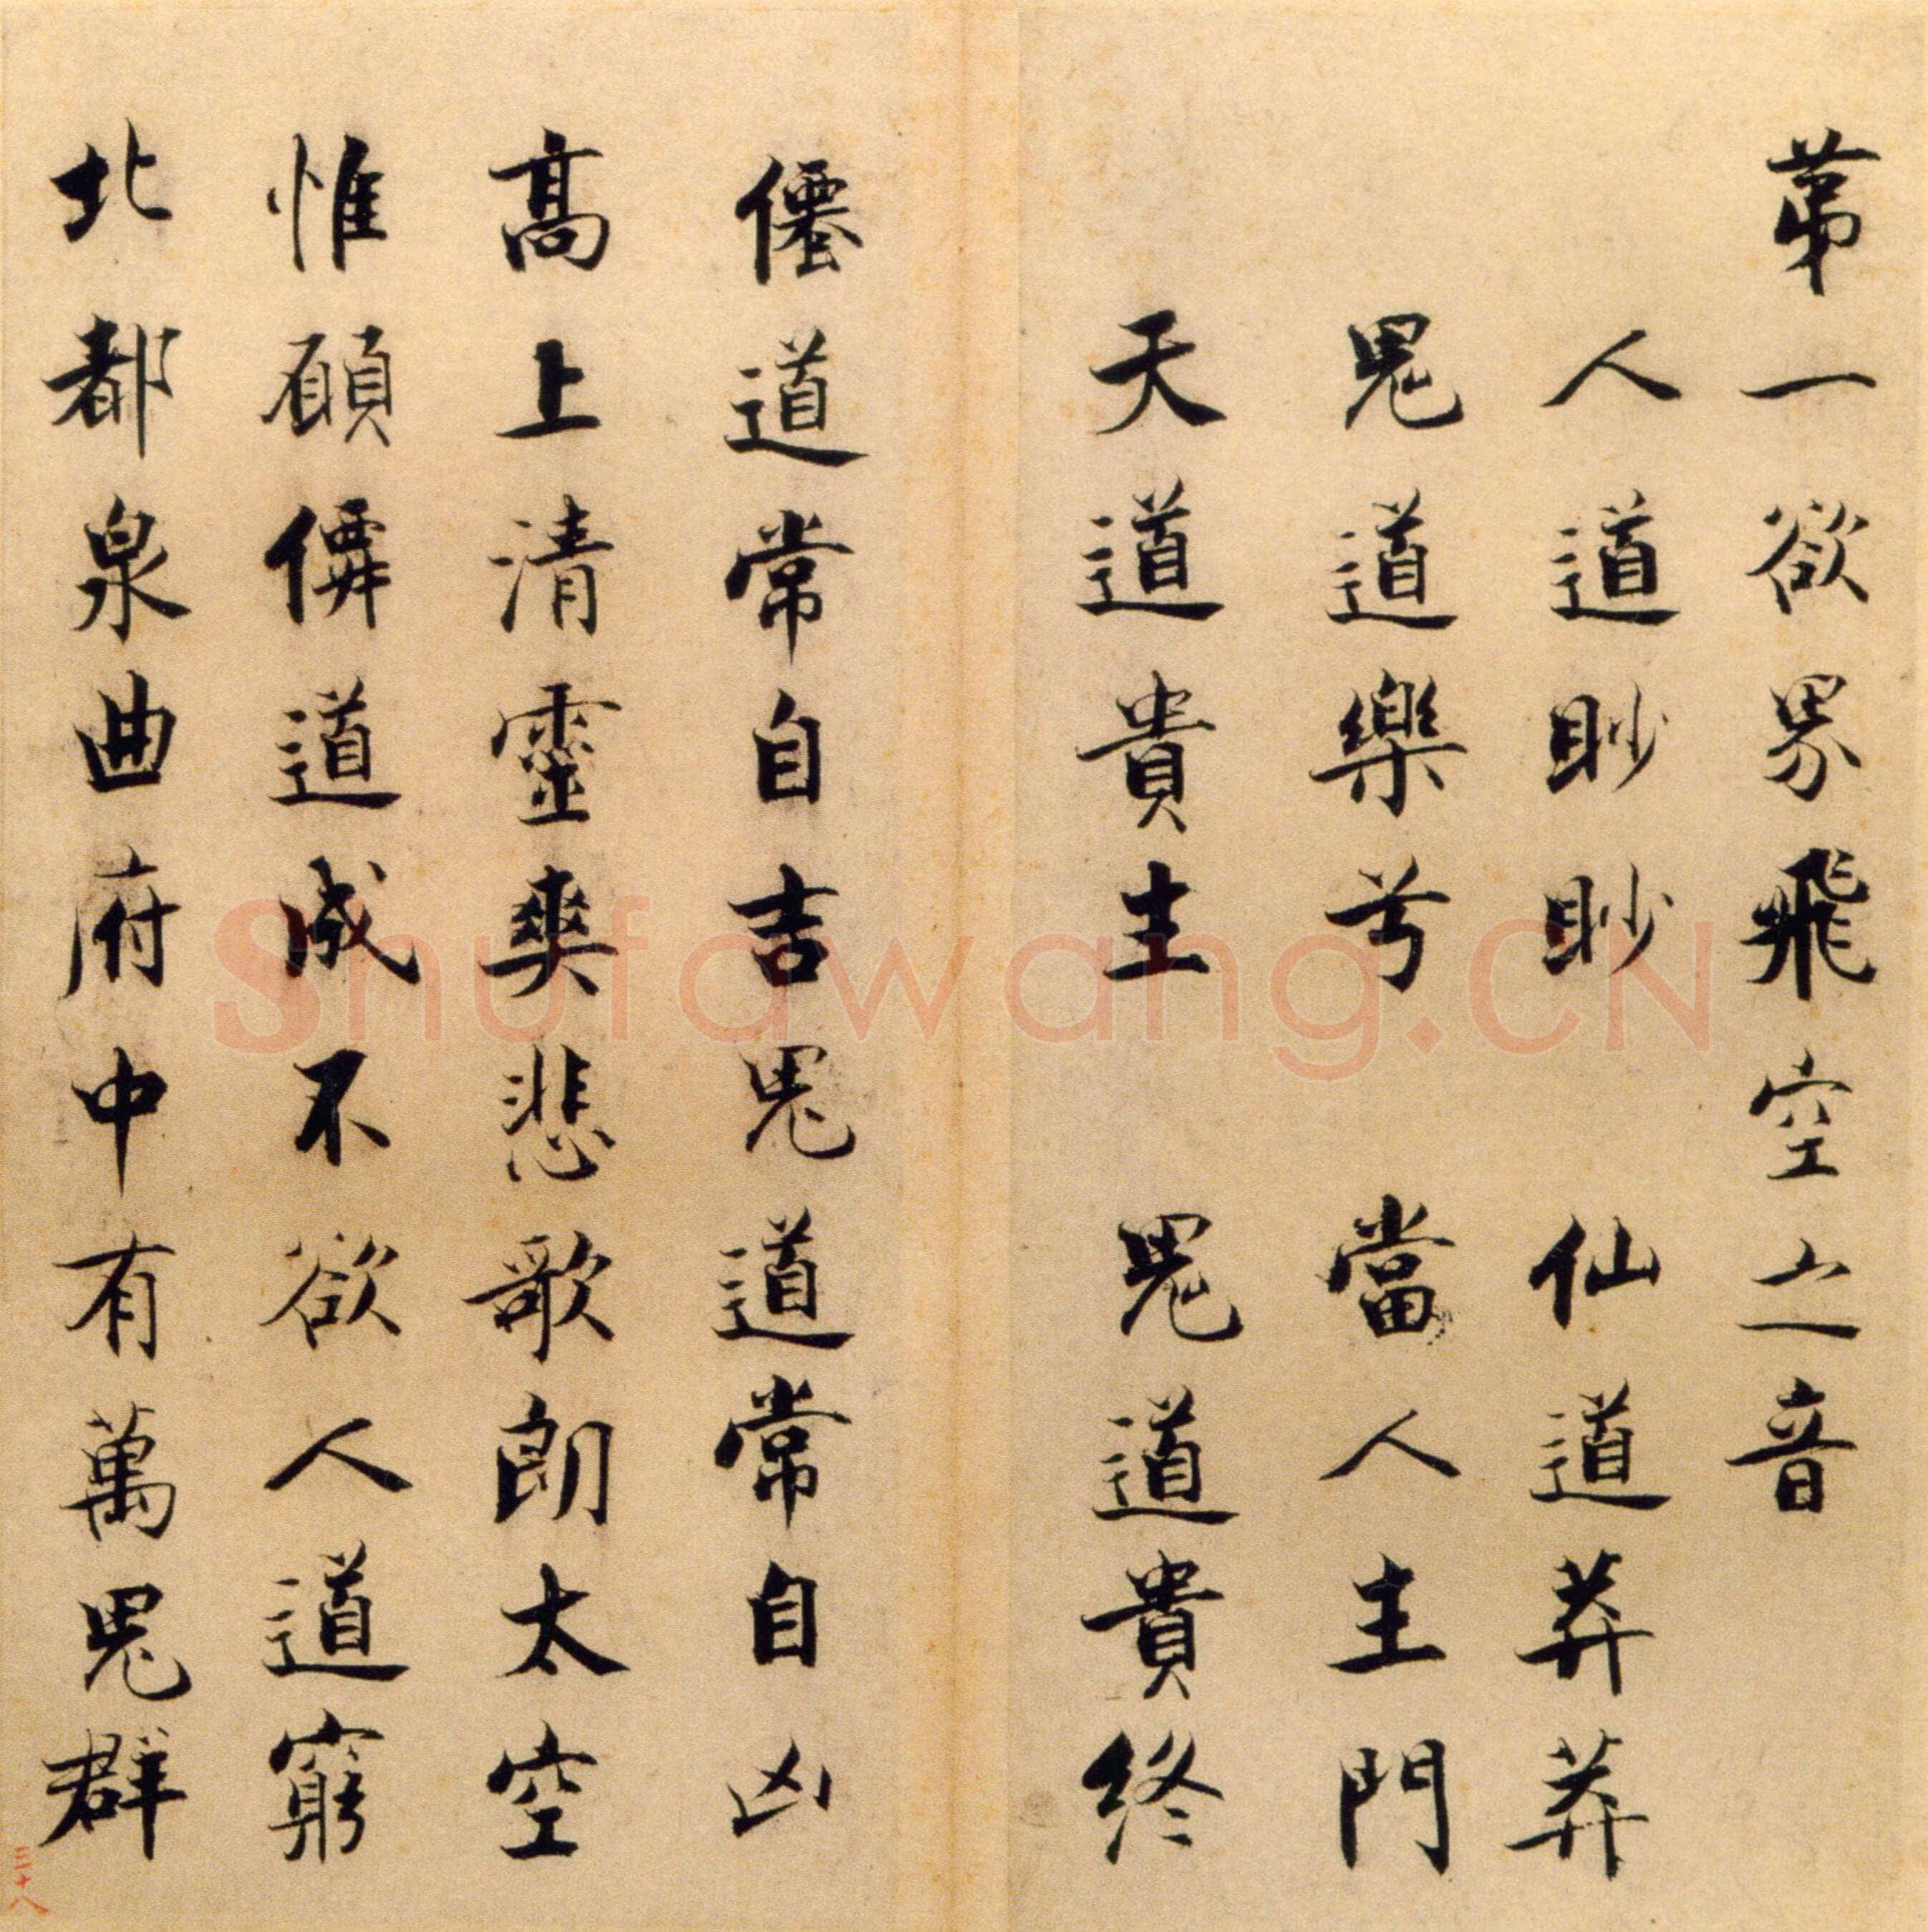 第一欲界飛空之音
人道眇眇 仙道莽莽
鬼道樂兮 當人主門
天道貴生 鬼道貴終
僊道常自吉鬼道常自凶
高上清靈爽悲歌朗太空
惟願僊道成不欲人道窮
北都泉曲府中有萬鬼群
三十八
Shufawang.CN